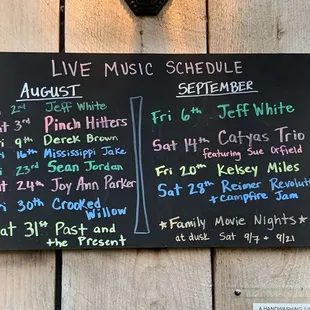 LIVE MUSIC SCHEDULE
AUGUST
2nd Jeff White
Sat 3rd Pinch Hitters
Fri 9th Derek Brown
Fri 16th Mississippi Jake
Fri 23rd Sean Jordan
Sat 24th Joy Ann Parker
Fri 30th Crooked
Willow
Sat 31st Past and
the Present
SEPTEMBER
Fri 6th Jeff White
Sat 14th Catyas Trio
featuring Sue Orfield
Fri 20th Kelsey Miles
Sat 28th Reimer Revolution
+ campfire Jam
*Family Movie Nights*
at dusk Sat 9/7 + 9/21
A HANDWASHING